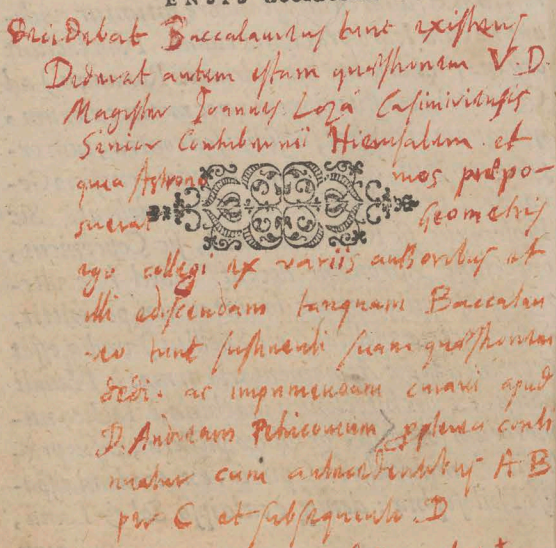 Baccalaureus tunc existens
Dederat autem istam quæstionem V. D.
Magister Joannes Loza Casimiriensis
Senior Contubernii Hierusalem et
quia Astrono mos præpo-
suerat Geometris
ego collegi ex variis auctoribus et
illi ediscendam tanquam Baccalau
-reo tunc sustinenti suam quæstionem
dedi. ac imprimendam curavi apud
D. Andream Petricovium
cum antecedentibus A B
per C et subsequenti D